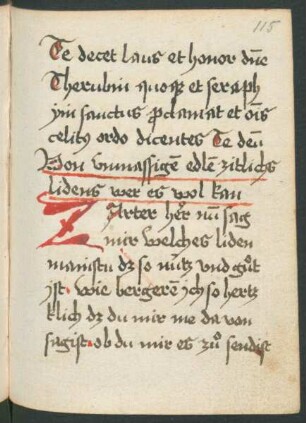 115
Te decet laus et honor dn̄e
Cherubin quoqꝫ et seraph
yn sanctus ꝓclamat et oīs
celitꝰ ordo dicentes Te deū
Von vnmassigē edlē zitlichs
lidens wer es wol kan
Zarter her̄ nū sag
mir welches liden
manistu dz so nütz vnd gůt
ist. wie bergerē ich so hertz
klich dz du mir me da von
sagist. ob du mir es zů sendist